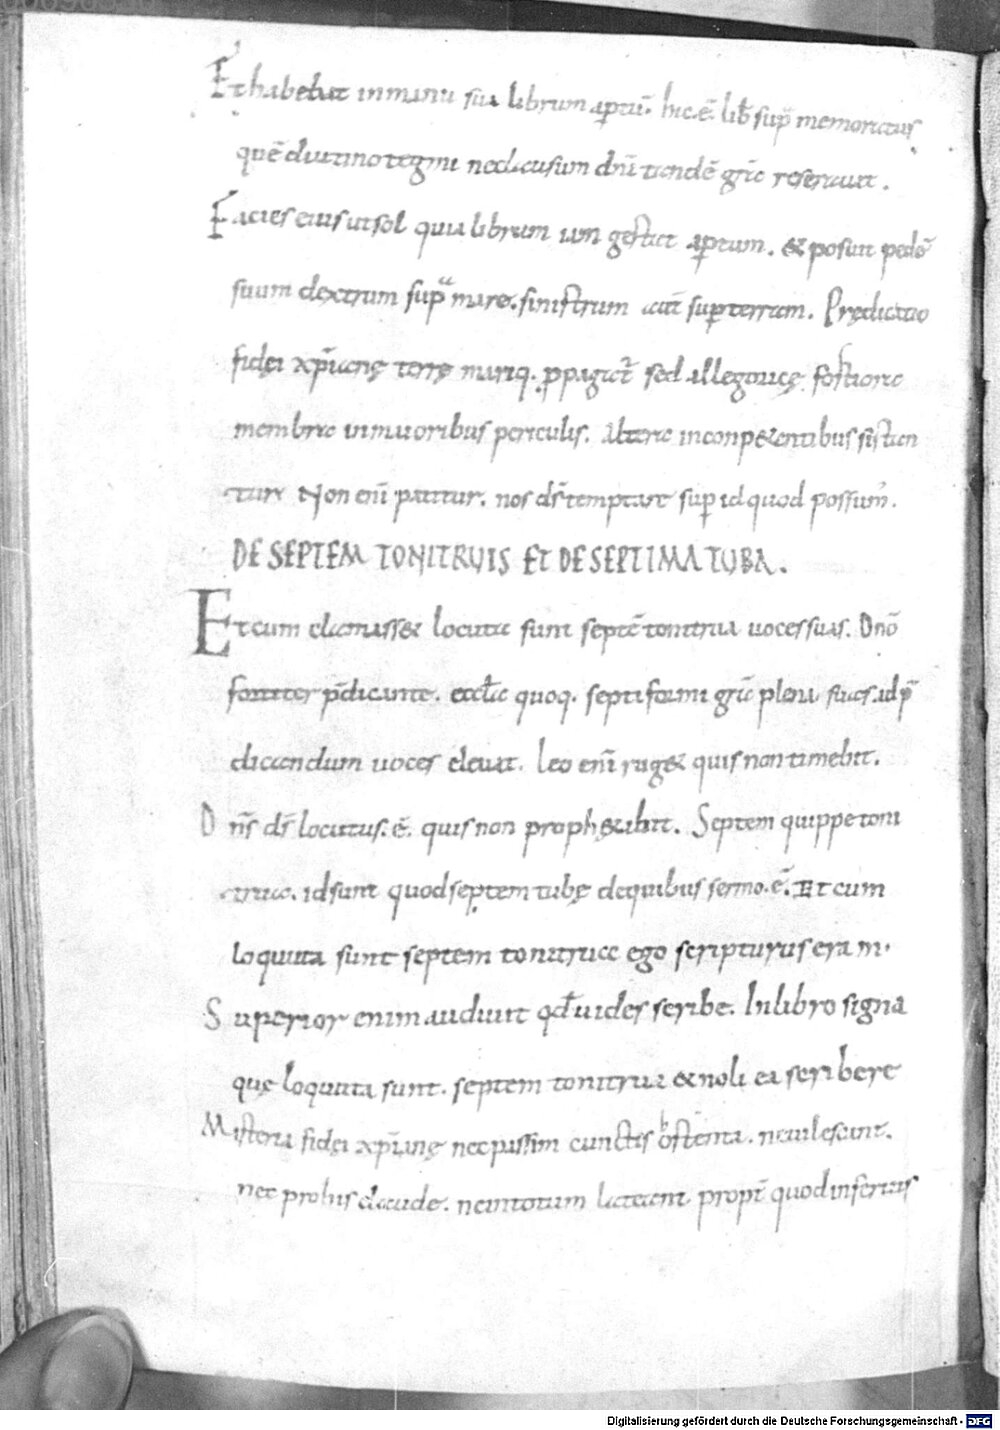 Et habebat in manu sua librum aptū. hic.ē. lib̄ sup̄ memoratus
quē diutino tegmi nedicusum dn̄i tandē gr̄a reserauit.
Facies eius ut sol quia librum iam gestat aptum. & posuit pedē
suum dextrum sup mare. sinistrum aūt sup terram. Prędicatio
fidęi xp̄ianę terrę mariq. ppagat̄ sed allegoricę fortiora
membra in maioribus periculis. Altera in conp&entibus sistan
tur Non enī patitur. nos dś temptare sup id quod possum'.
DE SEPTEM TONITRUIS ET DE SEPTIMA TUBA.
Et cum clamass& locuta sunt septē tonitrua uoces suas. Dnō
fortiter p̄dicante. eccl̄a quoq. septiformi gr̄a plena suas. ad p̄
dicandum uoces eleuat. Leo enī rug& quis non timebit.
Dn̄s dś locutus.ē. quis non proph&abit. Septem quippe toni
trua. id sunt quod septem tubę de quibus sermo.ē. Et cum
loquuta sunt septem tonitrua ego scripturus eram.
Superior enim audiuit qd̄ uides scribe. In libro signa
quę loquuta sunt. septem tonitrua & noli ea scribere
Misteria fidęi xp̄ianę nec passim cunctis ostenta. ne uilescant.
nec probis claude. ne in totum lateant propt̄ quod inferius
Digitalisierung gefördert durch die Deutsche Forschungsgemeinschaft - DFG